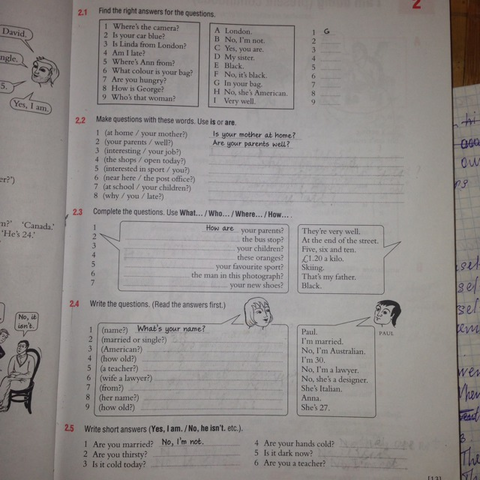 David.
ngle.
5.
Yes, I am.
2
2.1 Find the right answers for the questions.
1 Where's the camera?
2 Is your car blue?
3 Is Linda from London?
4 Am I late?
5 Where's Ann from?
6 What colour is your bag?
7 Are you hungry?
8 How is George?
9 Who's that woman?
A London.
B No, I'm not.
C Yes, you are.
D My sister.
E Black.
F No, it's black.
G In your bag.
H No, she's American.
I Very well.
1 G
2
3
4
5
6
7
8
9
2.2 Make questions with these words. Use is or are.
1 (at home / your mother?) Is your mother at home?
2 (your parents / well?) Are your parents well?
3 (interesting / your job?)
4 (the shops / open today?)
5 (interested in sport / you?)
6 (near here / the post office?)
7 (at school / your children?)
8 (why / you / late?)
er?')
n?' 'Canada.'
'He's 24.'
2.3 Complete the questions. Use What... / Who... / Where... / How... .
1 How are your parents?
2 the bus stop?
3 your children?
4 these oranges?
5 your favourite sport?
6 the man in this photograph?
7 your new shoes?
They're very well.
At the end of the street.
Five, six and ten.
£1.20 a kilo.
Skiing.
That's my father.
Black.
No, it isn't.
2.4 Write the questions. (Read the answers first.)
1 (name?) What's your name?
2 (married or single?)
3 (American?)
4 (how old?)
5 (a teacher?)
6 (wife a lawyer?)
7 (from?)
8 (her name?)
9 (how old?)
PAUL
Paul.
I'm married.
No, I'm Australian.
I'm 30.
No, I'm a lawyer.
No, she's a designer.
She's Italian.
Anna.
She's 27.
2.5 Write short answers (Yes, I am. / No, he isn't. etc.).
1 Are you married? No, I'm not.
2 Are you thirsty?
3 Is it cold today?
4 Are your hands cold?
5 Is it dark now?
6 Are you a teacher?
[13]